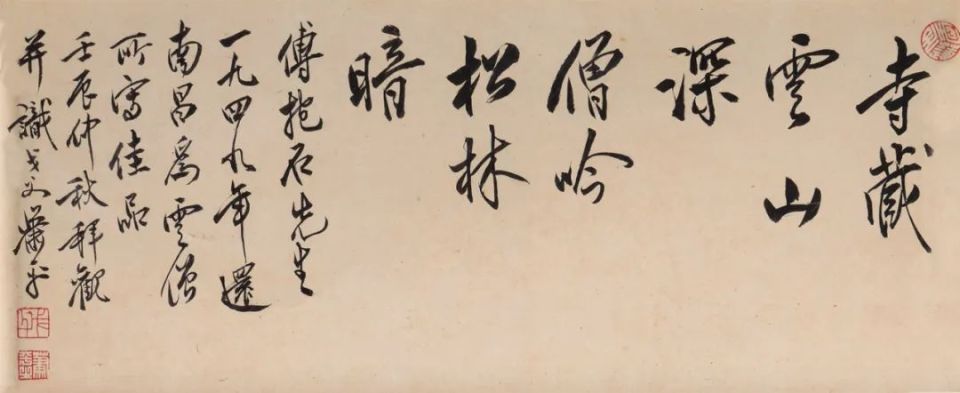 寺藏
雲山
深
僧吟
松林
暗
傅抱石先生
一九四九年還
南昌爲雲
所寫佳品
壬辰仲秋拜觀
并識戈父蕭平